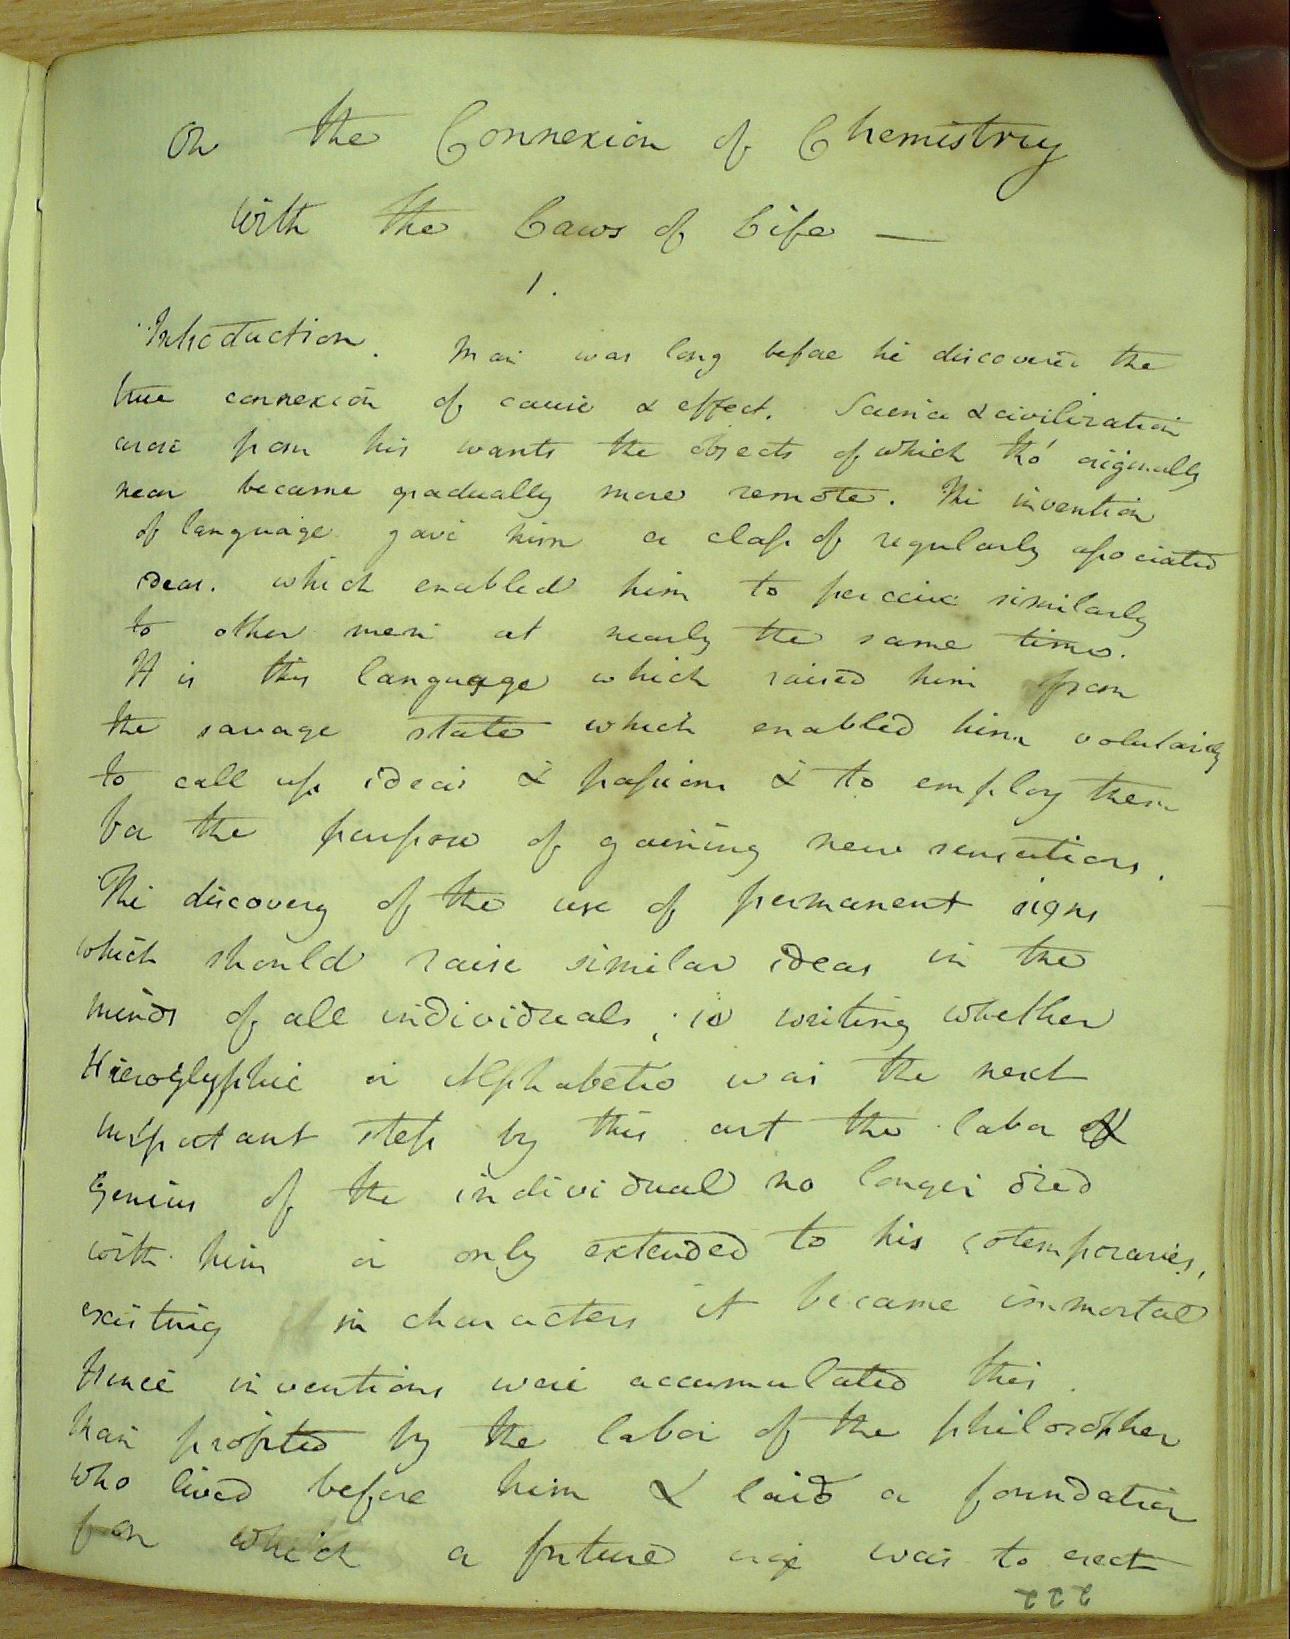 On the Connexion of Chemistry
with the Laws of Life —
1.
Introduction. Man was long before he discovered the
true connexion of cause & effect. Science & civilization
arose from his wants the objects of which tho' originally
near became gradually more remote. The invention
of language gave him a class of regularly associated
ideas. which enabled him to perceive similarly
to other men at nearly the same time.
It is this language which raised him from
the savage state which enabled him volutarily
to call up ideas & passions & to employ them
for the purpose of gaining new sensations.
The discovery of the use of permanent signs
which should raise similar ideas in the
minds of all individuals; ie writing whether
Hieroglyphic or Alphabetic was the next
important step by this art the labor of
Genius of the individual no longer died
with him or only extended to his cotemporaries,
existing in characters it became immortal
Hence inventions were accumulated this.
Man profited by the labor of the philosopher
who lived before him & laid a foundation
for which a future age was to erect
222